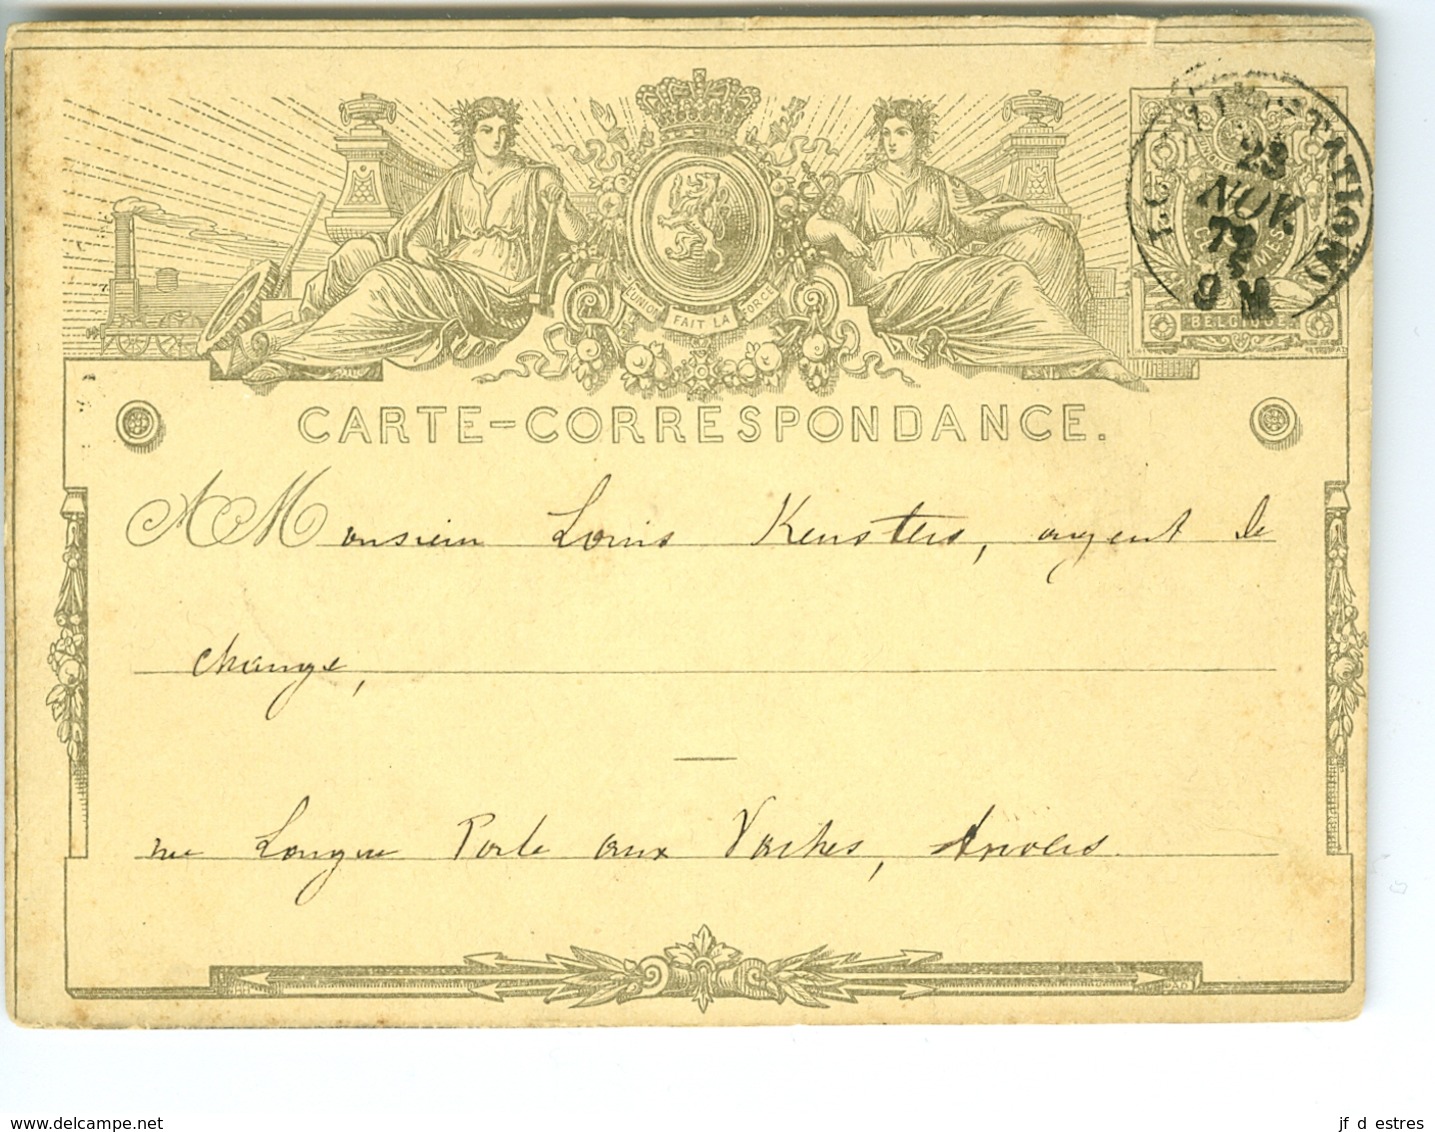 23
NOV.
9 M
BELGIQUE
L'UNION FAIT LA FORCE
CARTE-CORRESPONDANCE.
A Monsieur Louis Kensters, agent de
change,
rue Longue Porte aux Vaches, Anvers
www.delcampe.net
jf d estres